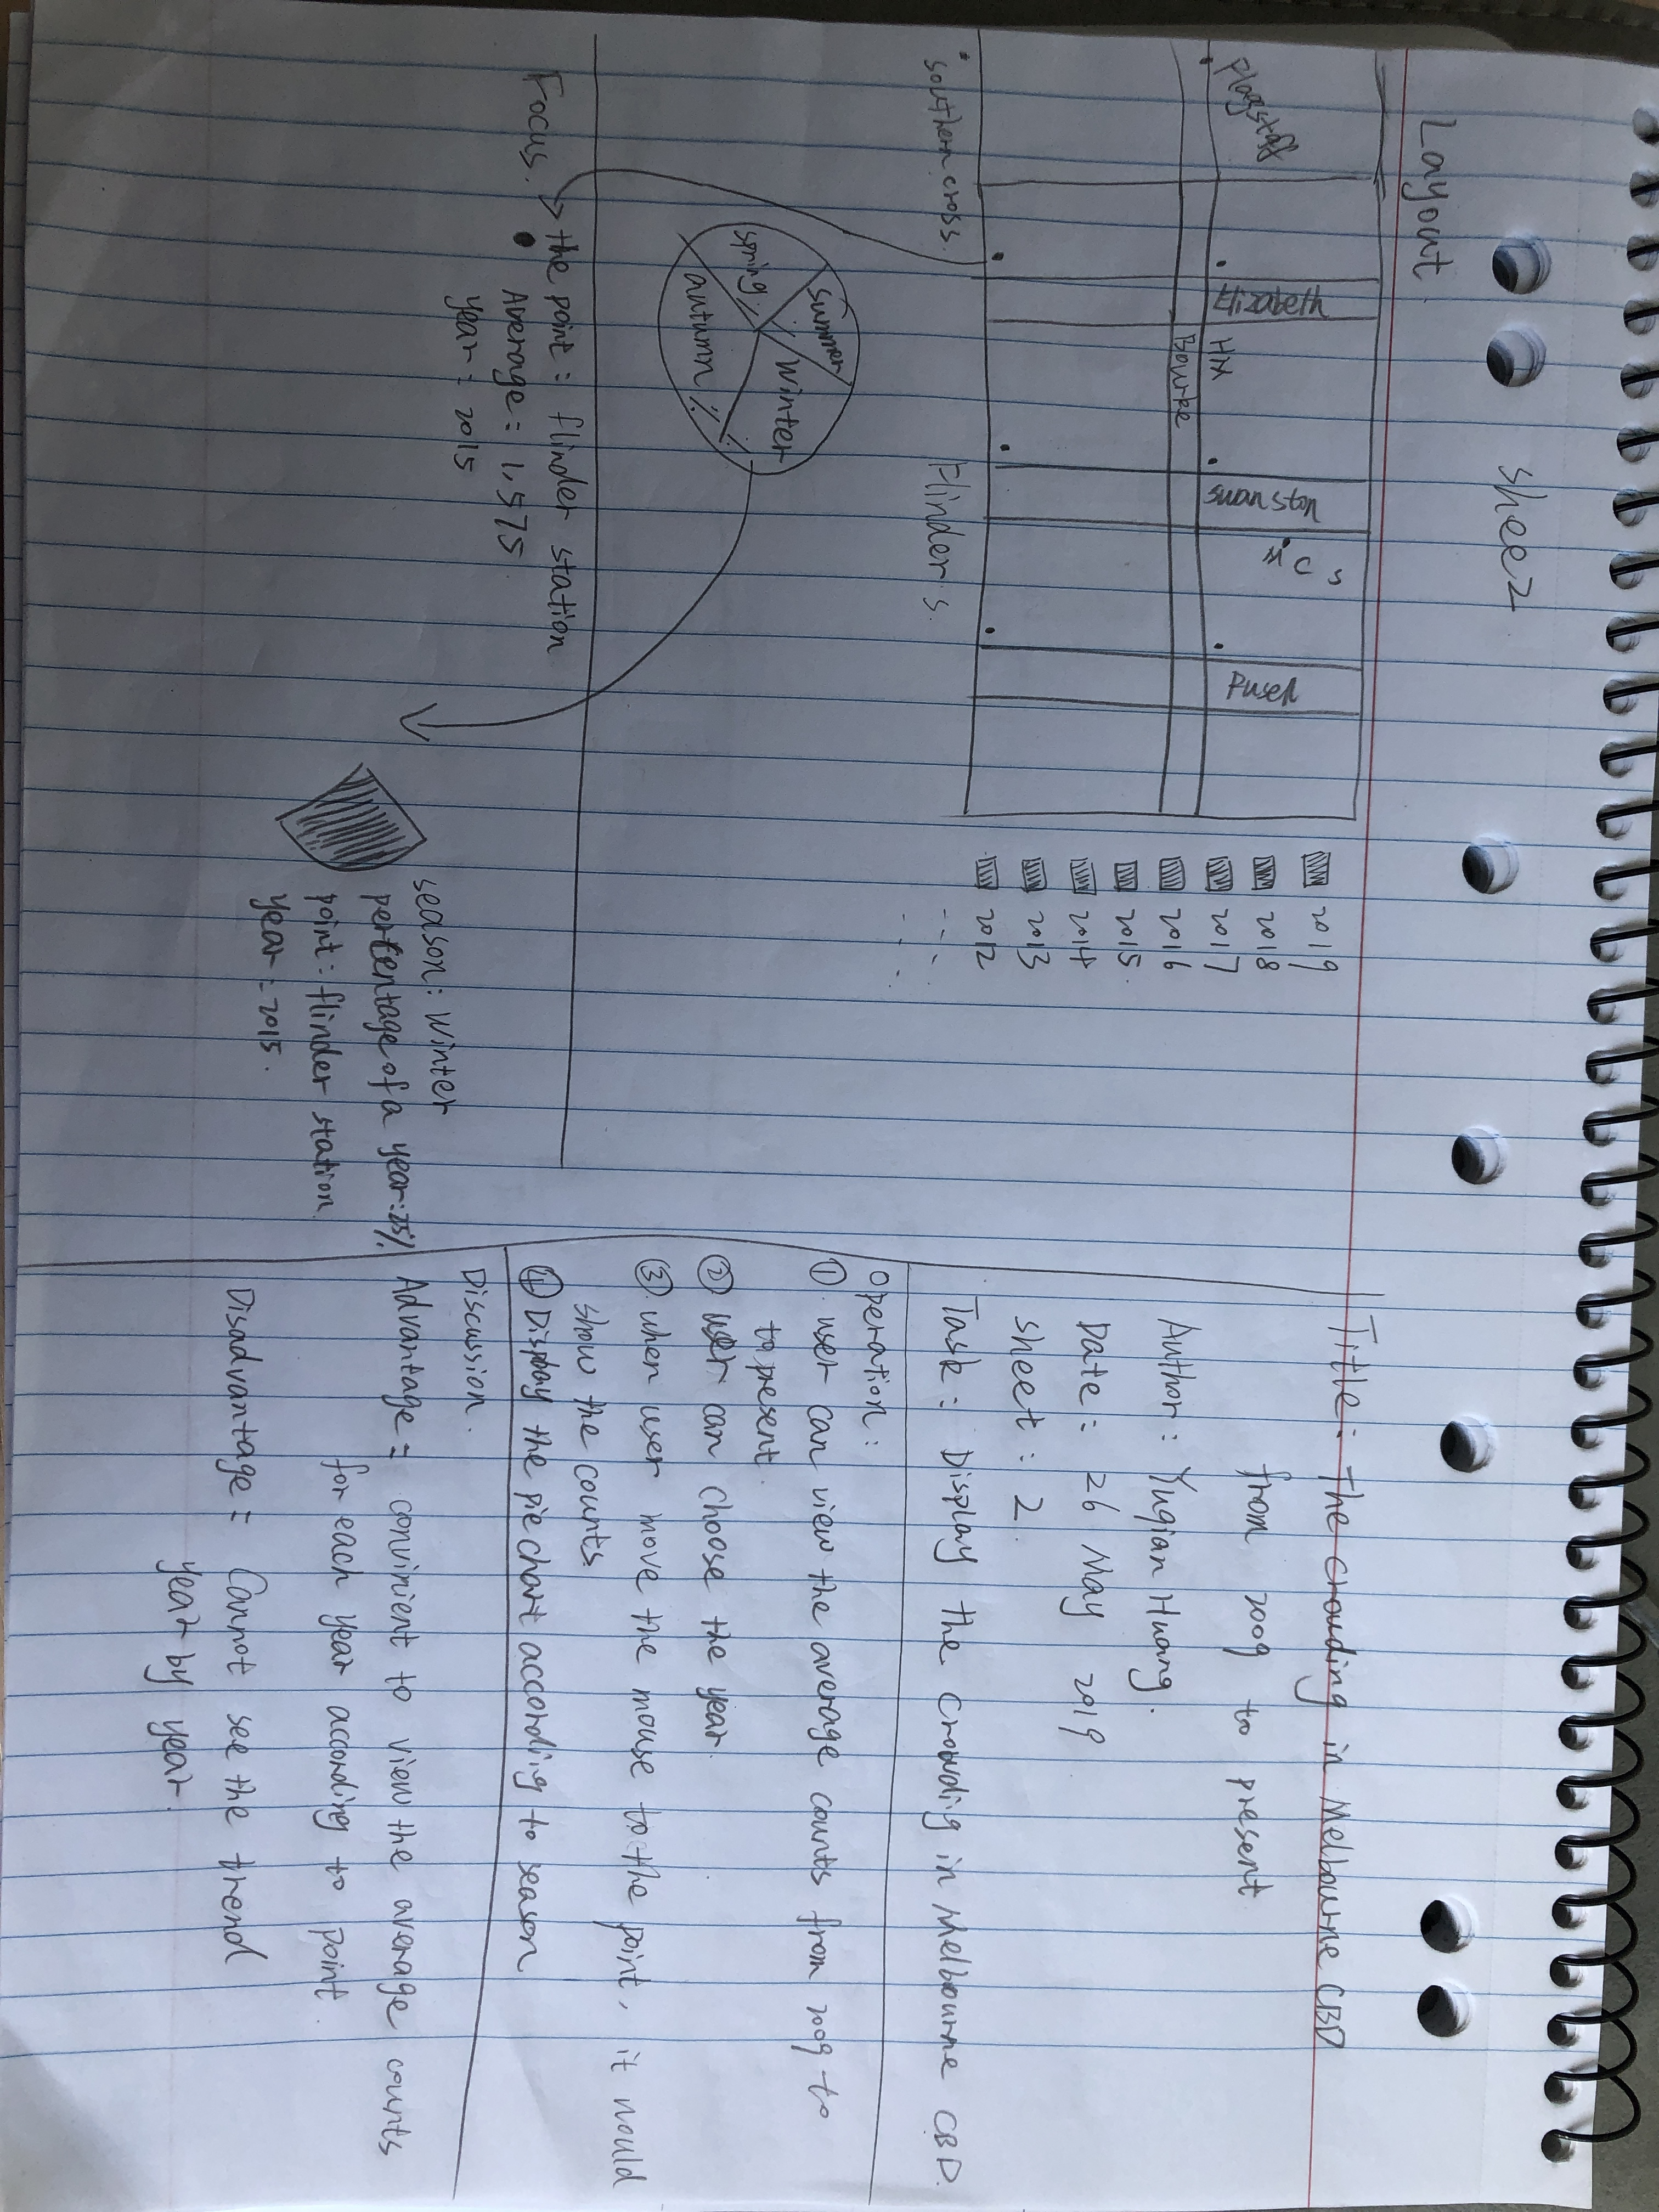 sheet 2
Layout.
Flagstaff
Elizabeth
HX
swanston
s c s
Rusell
Bourke
southern cross.
Flinders.
2019
2018
2017
2016
2015.
2014
2013
2012
summer
spring %
winter
autumn %
%
Focus.
the point: flinder station
Average: 1,575
year: 2015
season: winter
percentage of a year: 25%.
point: flinder station.
year: 2015.
Title: The crouding in Melbourne CBD
from 2009 to present
Author: Yuqian Huang.
Date: 26 May 2019
sheet: 2.
Task: Display the crowding in Melbourne CBD.
operation:
① user can view the average counts from 2009 to
to present.
② user can choose the year.
③ when user move the mouse to the point, it would
show the counts
④ Display the pie chart according to season
Discussion.
Advantage: convinient to view the average counts
for each year according to point
Disadvantage: Cannot see the trend
year by year.